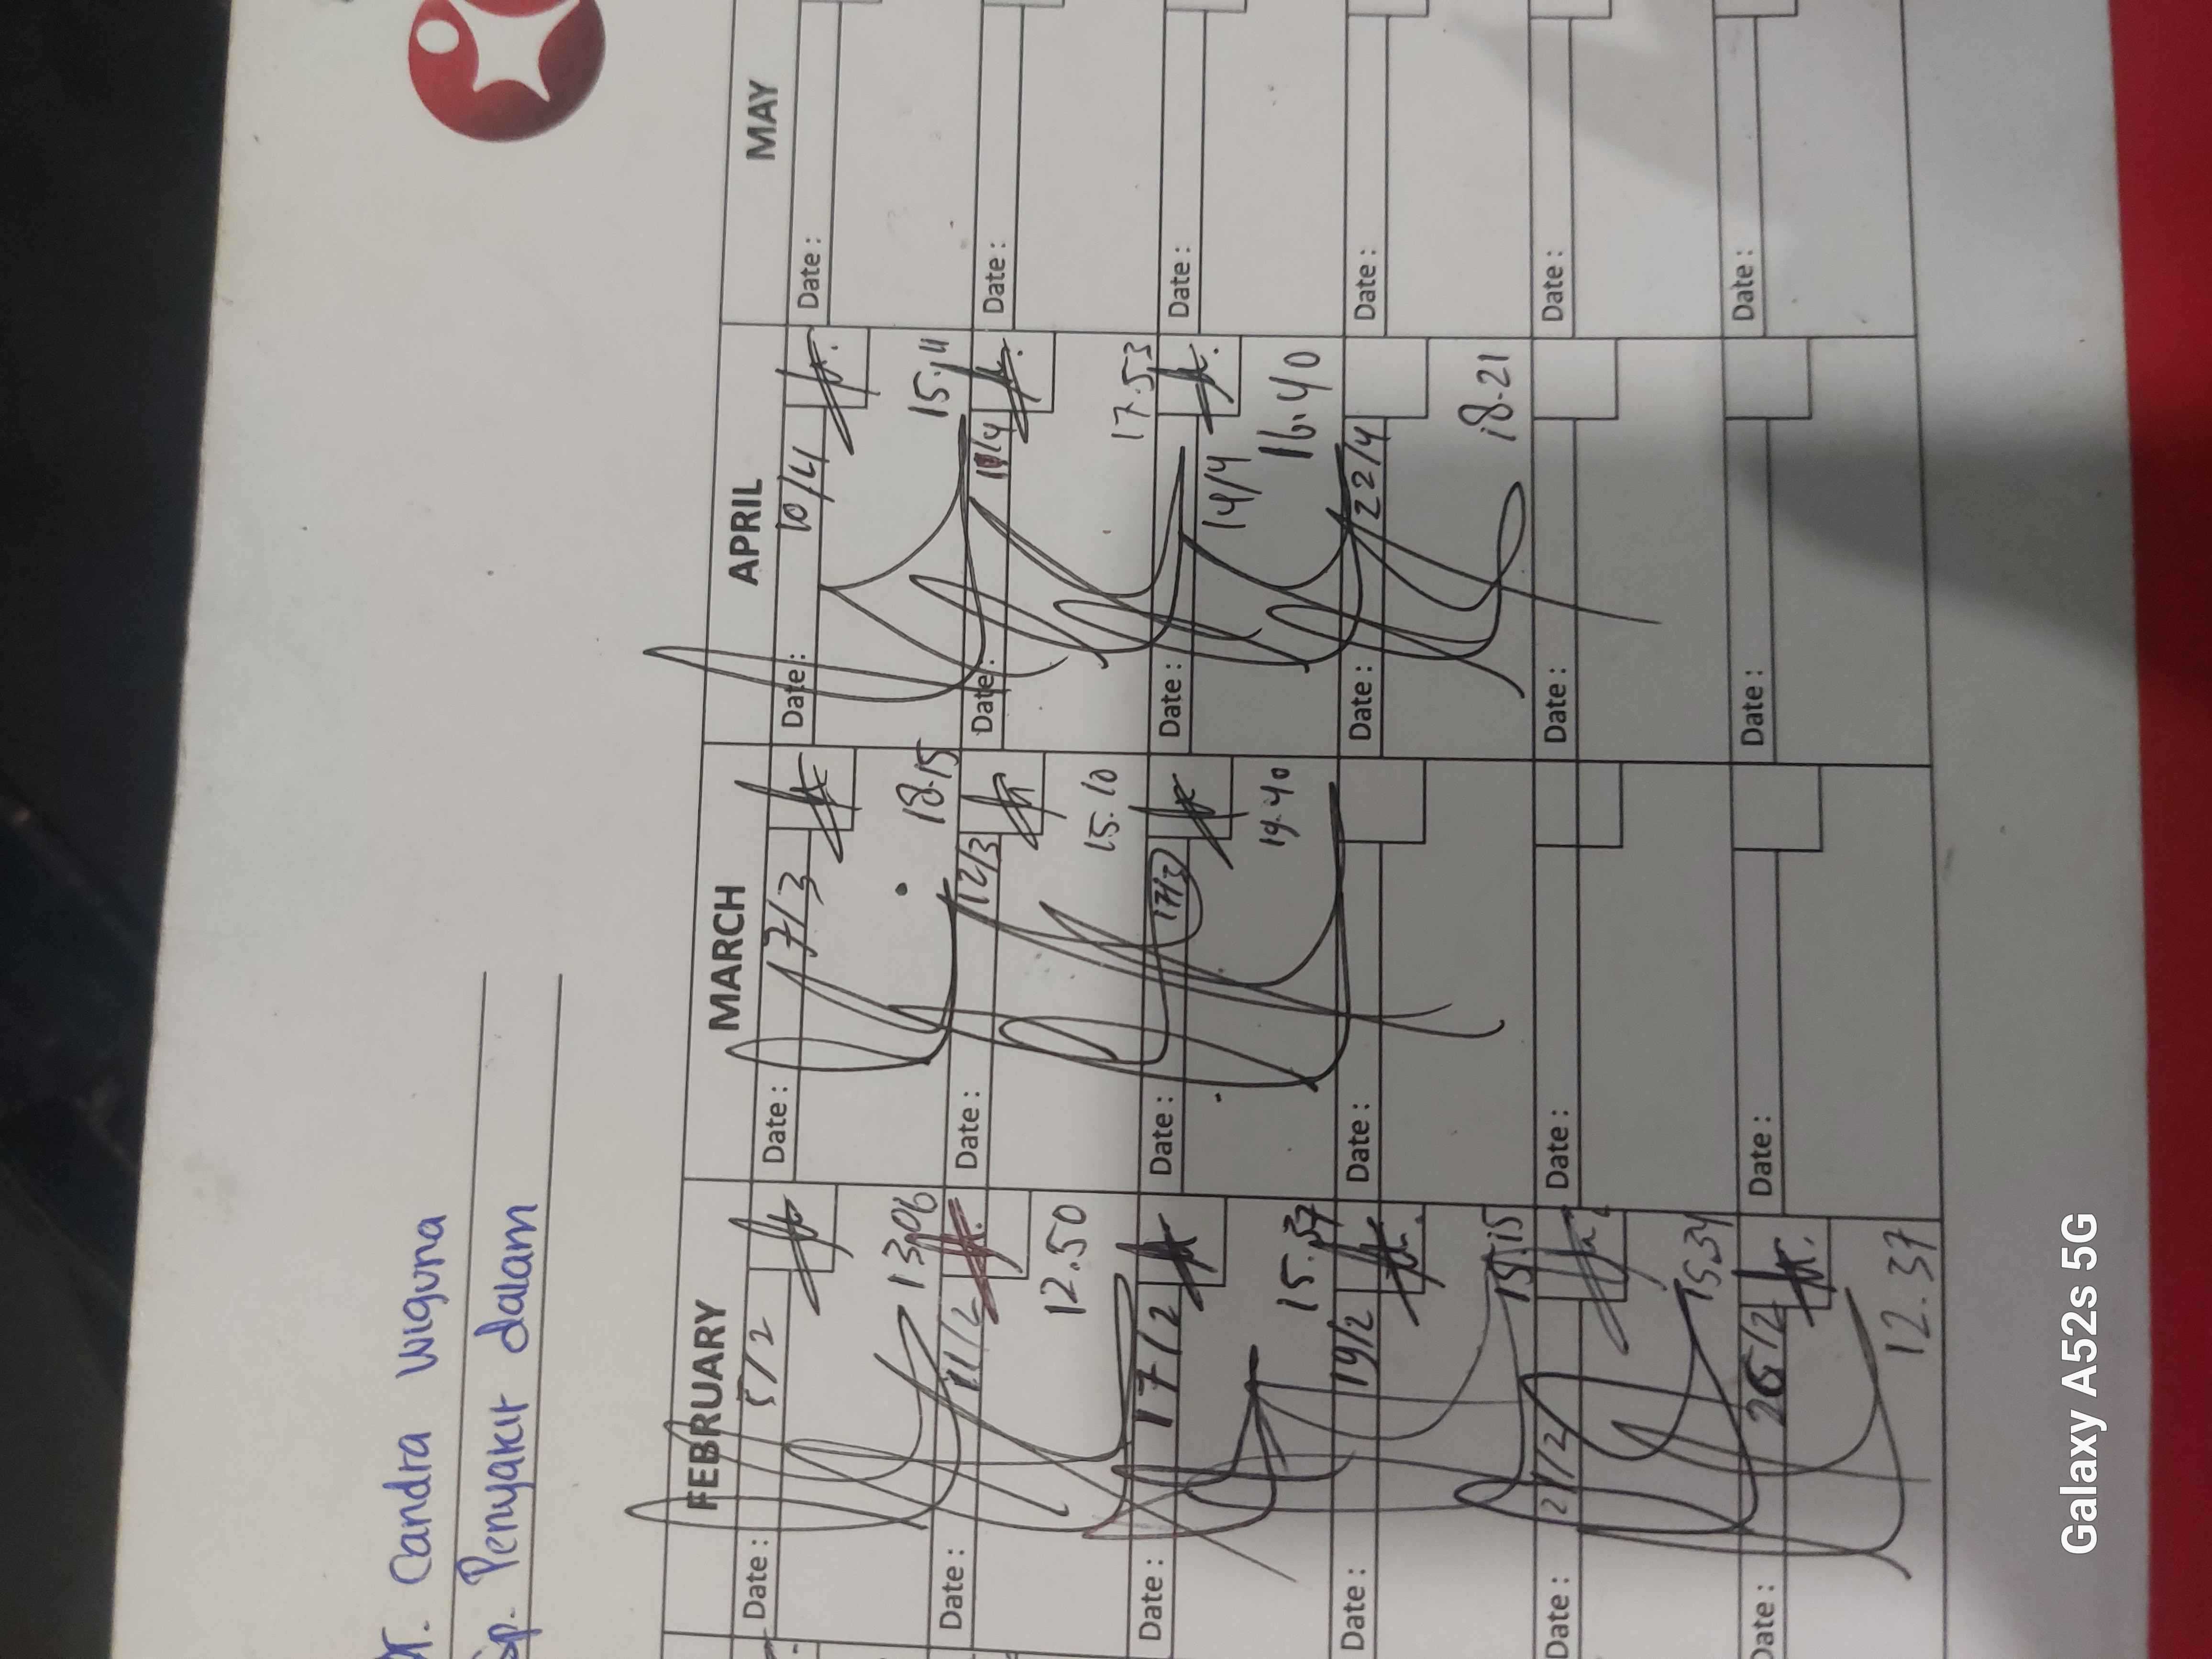 Dr. Candra Wiguna
Sp. Penyakit dalam
FEBRUARY MARCH APRIL MAY
Date: 5/2 Date: 7/3 Date: 10/4 Date:
13.06 18.15 15.11
Date: 11/2 Date: 12/3 Date: 11/4 Date:
12.50 15.10 17.53
Date: 17/2 Date: 17/3 Date: 14/4 Date:
15.37 19.40 16.40
Date: 19/2 Date: Date: 22/4 Date:
15.15 18.21
Date: 21/2 Date: Date: Date:
15.34
Date: 26/2 Date: Date: Date:
12.37
Galaxy A52s 5G